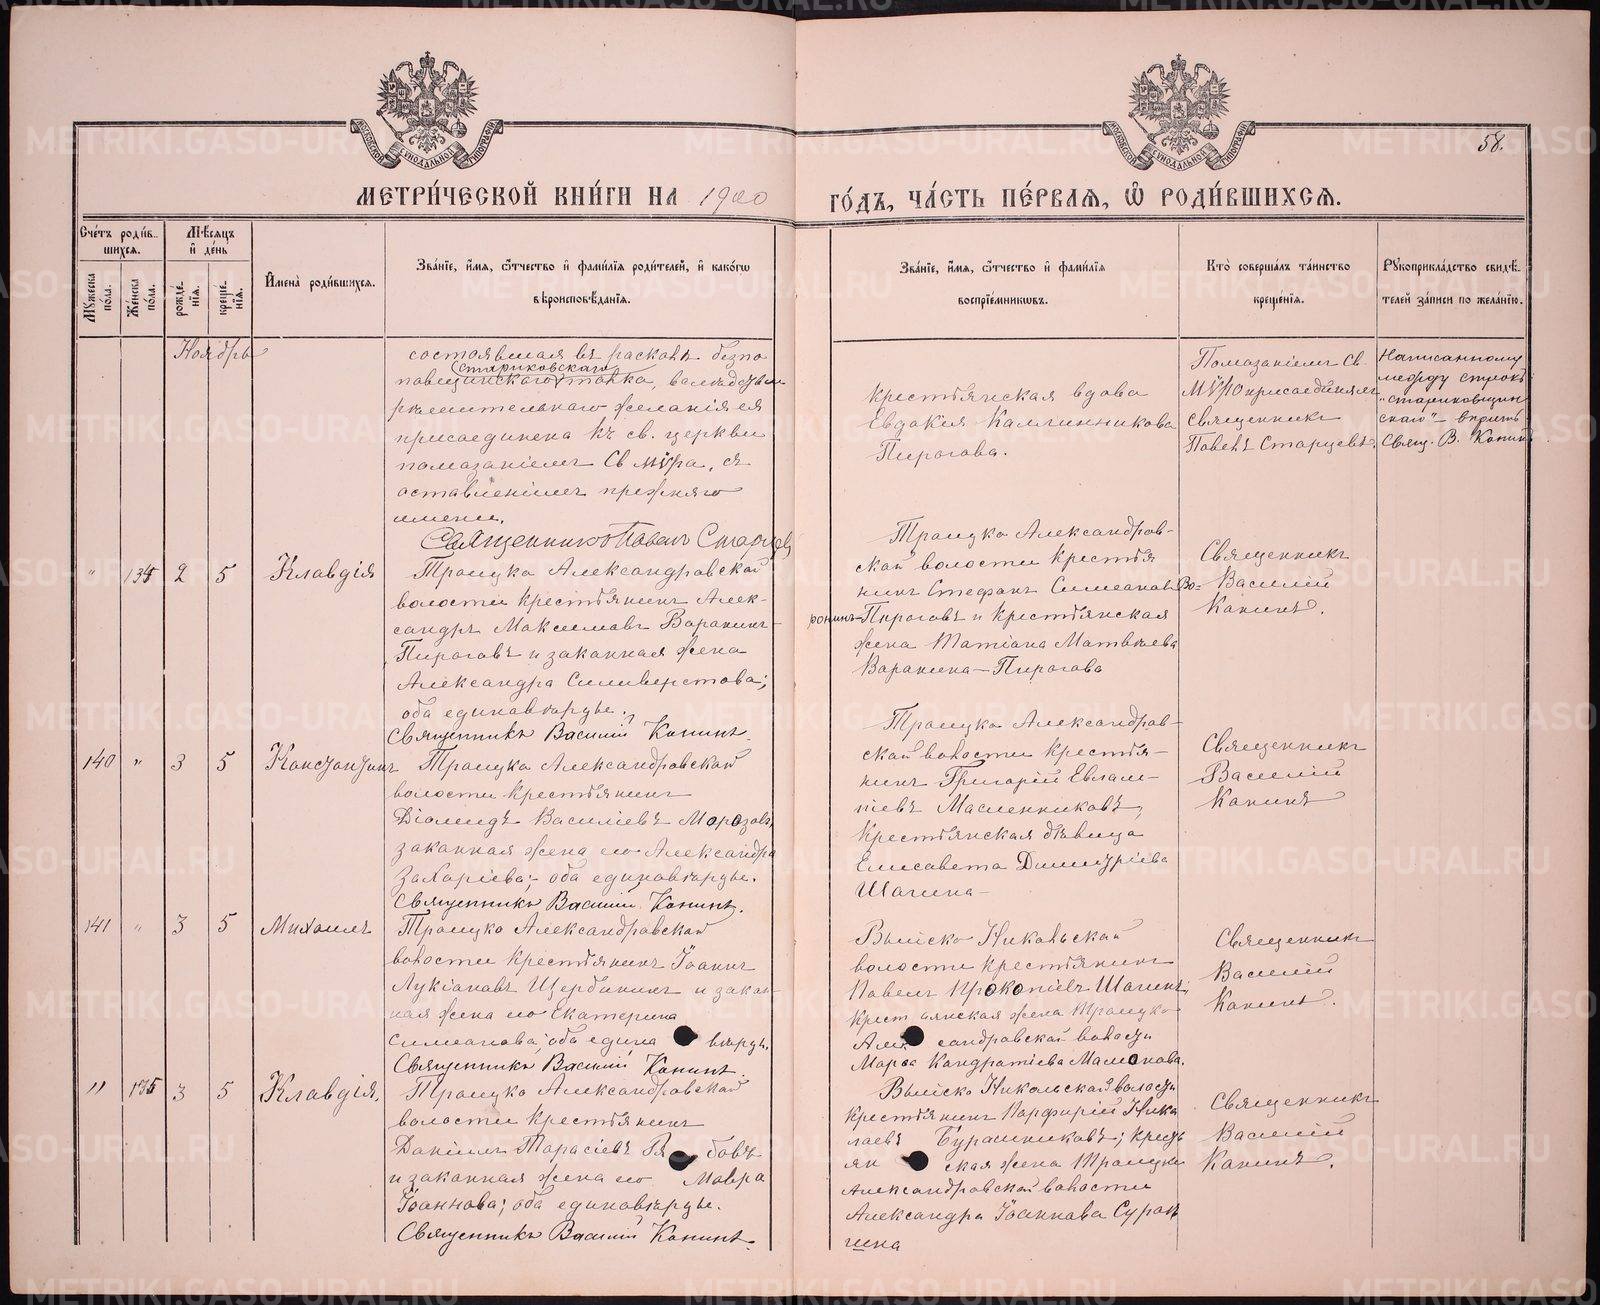 58.
МЕТРИ́ЧЕСКОЙ КНИ́ГИ НА 1900 ГО́ДЪ, ЧА́СТЬ ПЕ́РВАѦ, Ѽ РОДИ́ВШИХСѦ.
Сче́тъ роди́в-
шихсѧ.
Мѹжеска
по́ла.
Же́нска
по́ла.
Мѣ́сѧцъ
и де́нь
рожде́-
нїѧ.
креще́-
нїѧ.
Имена̀ роди́вшихсѧ.
Зва́нїе, и́мѧ, ѻ́тчество и фами́лїѧ роди́телей, и како́гѡ
вѣроисповѣ́данїѧ.
Зва́нїе, и́мѧ, ѻ́тчество и фами́лїѧ
воспрїе́мникѡвъ.
Кто̀ соверша́лъ та́инство
креще́нїѧ.
Рѹкоприкла́дство свидѣ́-
телей за́писи по жела́нїю.
Ноябрь
состоявшая въ расколѣ безпо
Стариковскаго
повщинскаго толка, вслѣдствии
рѣшительнаго желанія ея
присоединена къ св. церкви
помазаніемъ Св мѵра, съ
оставленіемъ прежняго
имени.
Священникъ Павелъ Старцев
Крестьянская вдова
Евдокия Каллинникова
Пирогова.
Помазаніемъ Св
мѵромъ присоединялъ
священникъ
Павелъ Старцевъ.
Написанному
между строкъ
"стариковщин
скаго" вѣрить
Свящ. В. Конинъ
" 134 2 5 Клавдія
Троицко Александровской
волости крестьянинъ Алек-
сандръ Максимовъ Воронинъ-
Пироговъ и законная жена
Александра Силиверстова;
оба единовѣрцы.
Священникъ Василій Конинъ.
Троицко Александров-
ской волости крестья
нинъ Стефанъ Симеоновъ Во-
ронинъ-Пироговъ и крестьянская
жена Татіана Матвѣева
Воронина-Пирогова
Священникъ
Василій
Конинъ.
140 " 3 5 Константинъ
Троицко Александровской
волости крестьянинъ
Діомидъ Василіевъ Морозовъ,
законная жена его Александра
Захаріева; оба единовѣрцы.
Священникъ Василій Конинъ.
Троицко Александров-
ской волости крестья-
нинъ Григорій Евлам-
піевъ Масленниковъ,
крестьянская дѣвица
Елисавета Димитріева
Шагина-
Священникъ
Василій
Конинъ
141 " 3 5 Михаилъ
Троицко Александровской
волости крестьянинъ Іоаннъ
Лукіановъ Щербининъ и закон-
ная жена его Екатерина
Симеонова; оба едино вѣрцы.
Священникъ Василій Конинъ.
Выйско Никольской
волости крестьянинъ
Павелъ Прокопіевъ Шагинъ;
крестьянская жена Троицко
Александровской волости
Марѳа Кондратіева Мамонова.
Священникъ
Василій
Конинъ.
11 135 3 5 Клавдія,
Троицко Александровской
волости крестьянинъ
Даніилъ Тарасіевъ Ря бовъ
и законная жена его Мавра
Іоаннова; оба единовѣрцы.
Священникъ Василій Конинъ.
Выйско Никольской волости
крестьянинъ Порфирій Нико
лаевъ Бурашниковъ; кресть
ян ская жена Троицко
Александровской волости
Александра Іоаннова Сурав
шина
Священникъ
Василій
Конинъ.